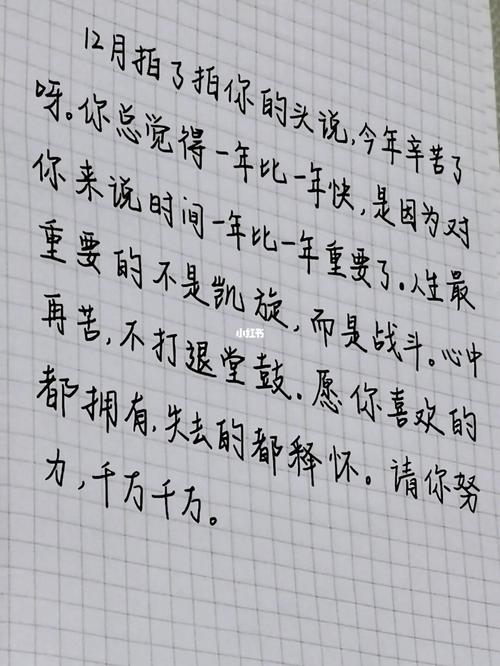 12月拍了拍你的头说,今年辛苦了
呀。你总觉得一年比一年快,是因为对
你来说时间一年比一年重要了。人生最
重要的不是凯旋,而是战斗。心中
再苦,不打退堂鼓。愿你喜欢的
都拥有,失去的都释怀。请你努
力,千万千万。
小红书